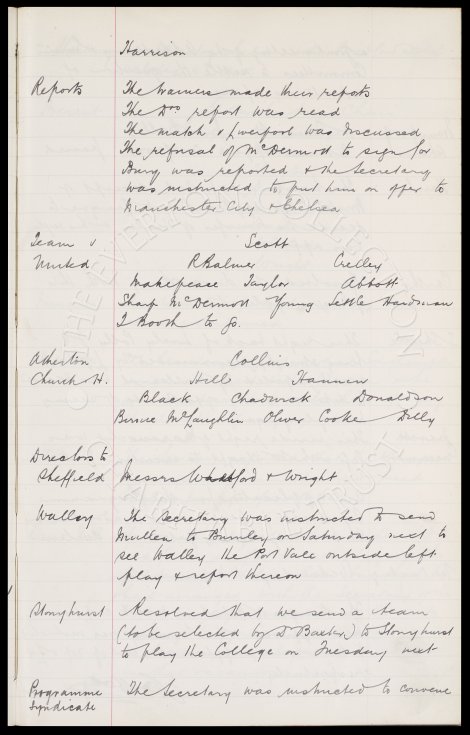 Harrison
Reports The trainers made their reports
The Drs report was read
The match v Liverpool was discussed
The refusal of McDermott to sign for
Bury was reported & the Secretary
was instructed to put him on offer to
Manchester City & Chelsea
Team v Scott
United R Balmer Crelley
Makepeace Taylor Abbott
Sharp McDermott Young Settle Hardman
T Booth to go.
Atherton Collins
Church H. Hill Hannon
Black Chadwick Donaldson
McLaughlin Oliver Cooke Dilly
Directors to
Sheffield Messrs & Wright
Walley The Secretary was instructed to send
Mullen to Burnley on Saturday next to
see Walley the Port Vale outside left
play & report thereon
Stonyhurst Resolved that we send a team
(to be selected by Dr Baxter) to Stonyhurst
to play the College on Tuesday next
Programme The Secretary was instructed to convene
Syndicate
THE EVERTON COLLECTION
CHARITABLE TRUST